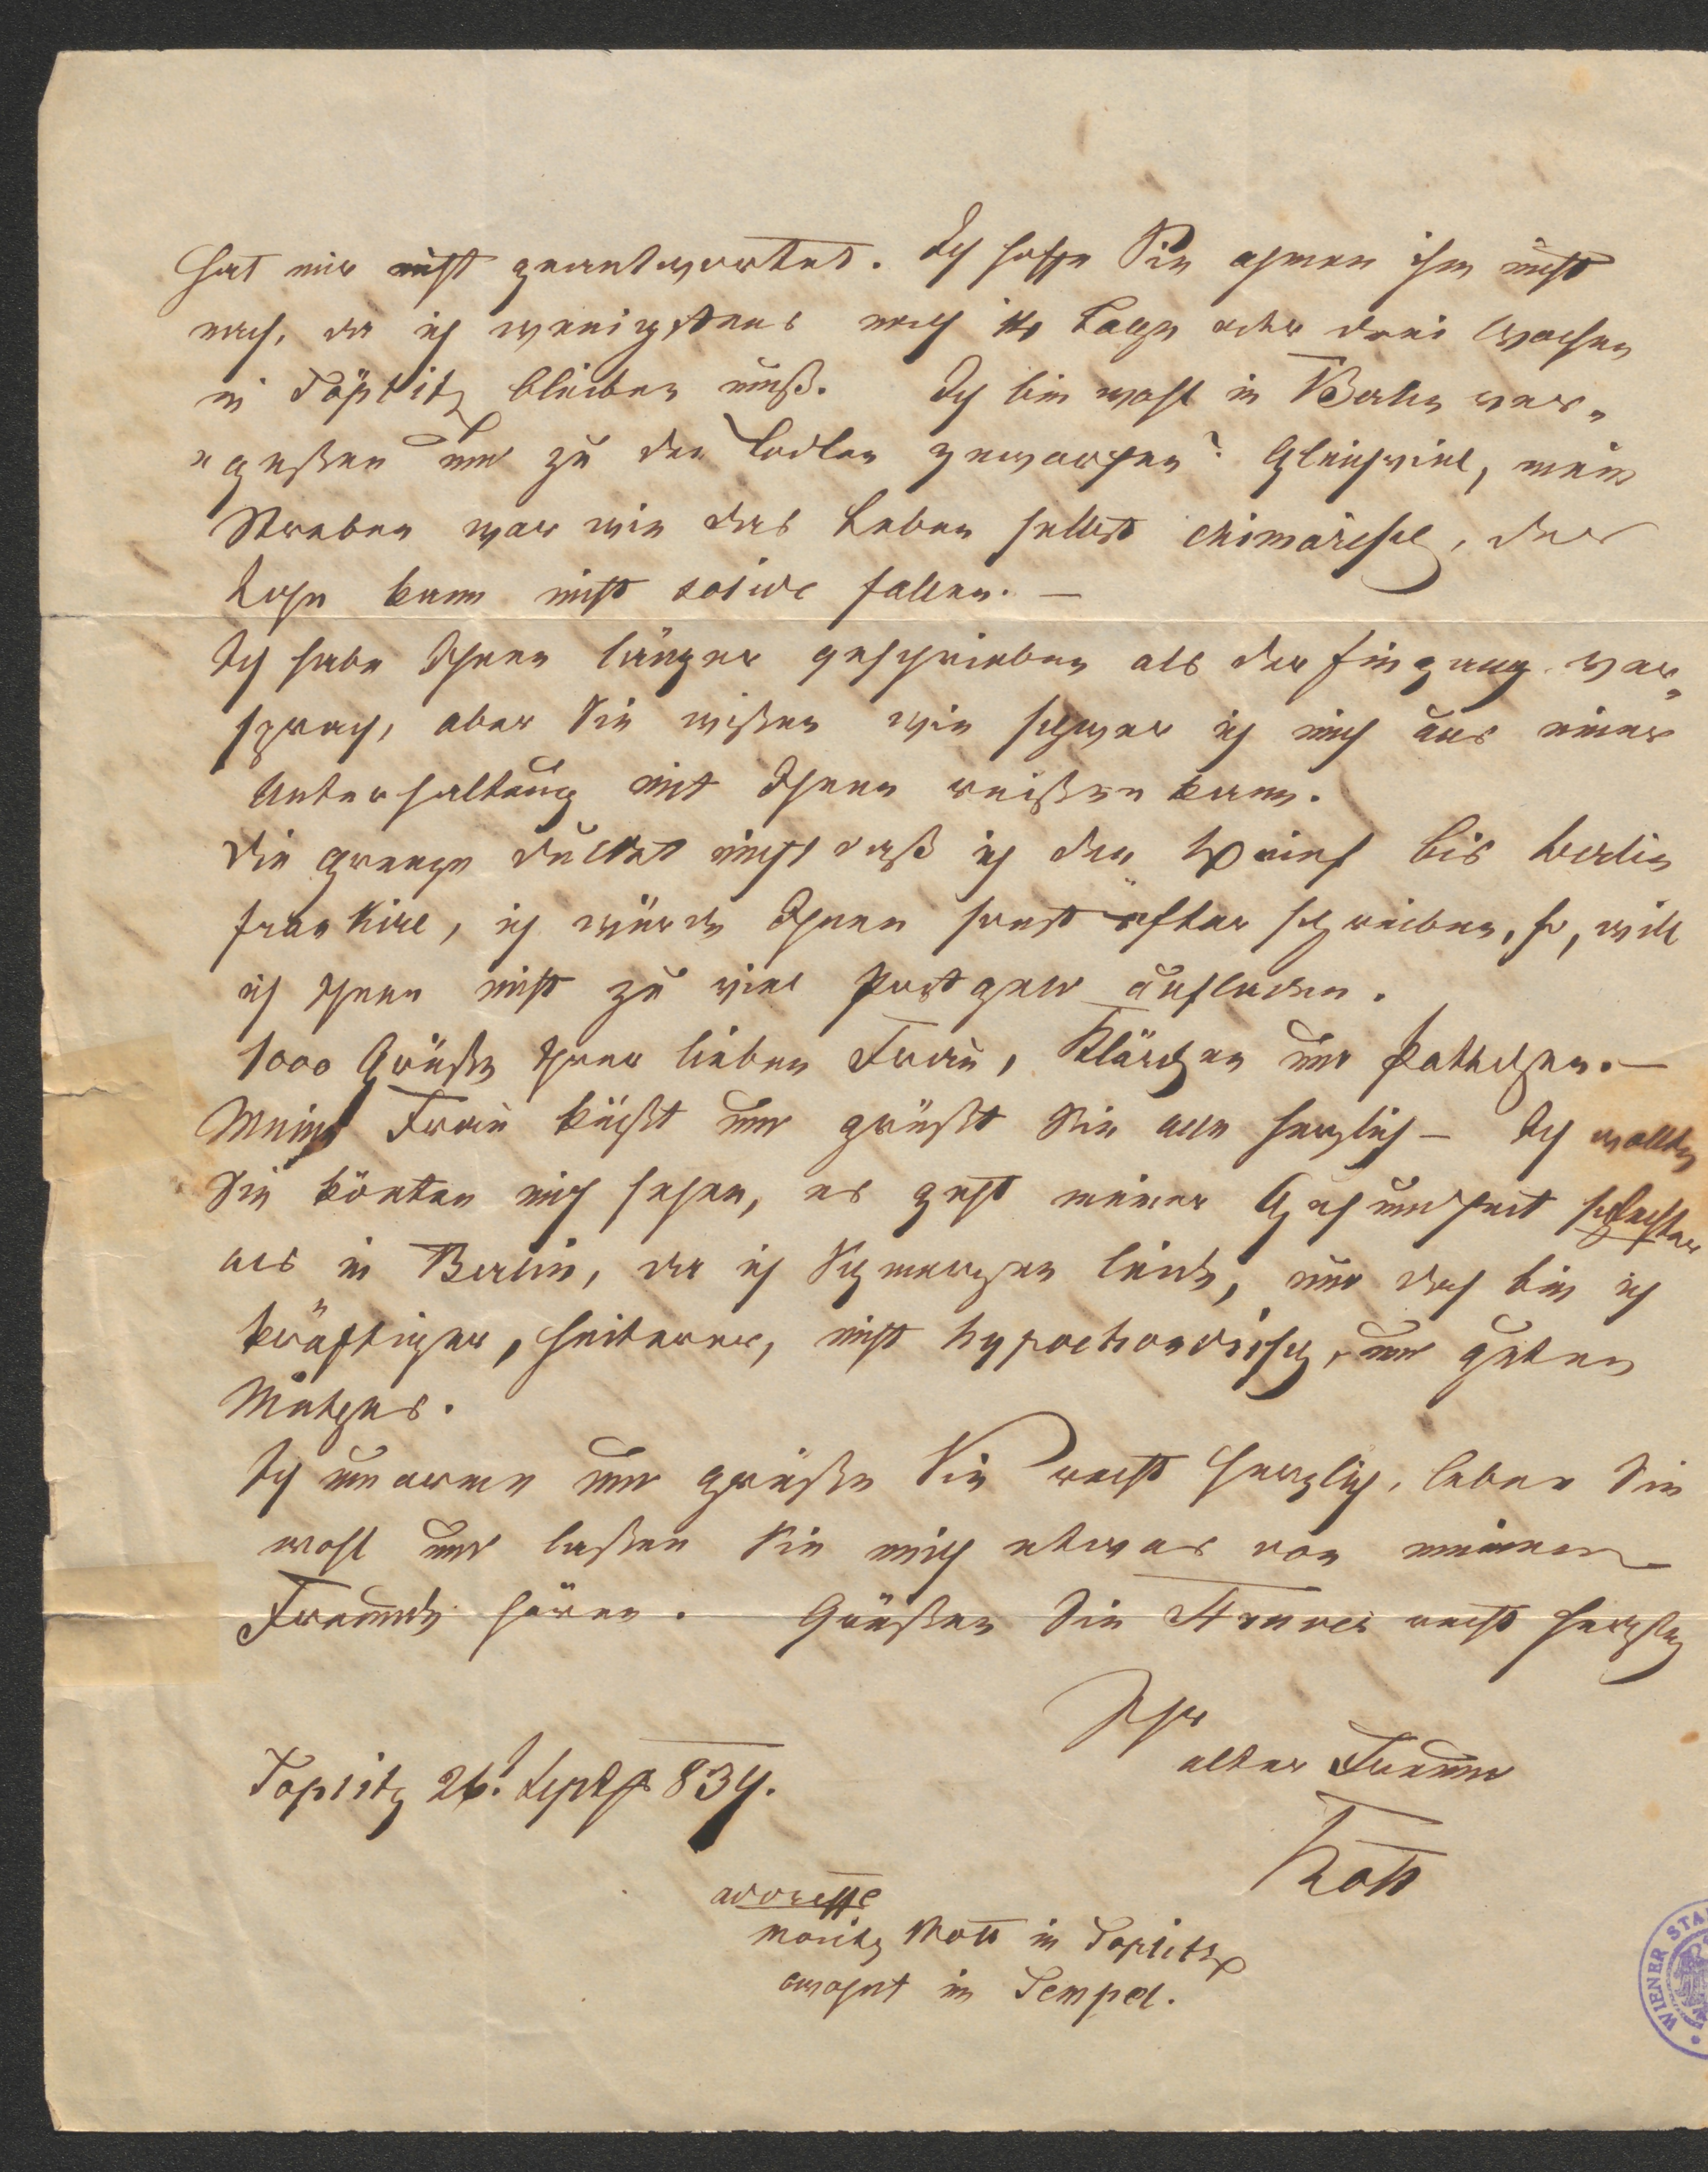 hat mir nicht geantwortet. Ich hoffe Sie ahmen ihm nicht
nach, da ich wenigstens noch Tage oder drei Wochen
in Töplitz bleiben muß. Ich bin wohl in Berlin ver„
„geßen und zu den Todten geworfen? Gleichviel, mein
Streben war wie das Leben selbst chimärisch, der
Lohn kann nicht solide fallen. —
Ich habe Ihnen länger geschrieben als der Eingang ver„
sprach, aber Sie wißen wie schwer ich mich aus einer
Unterhaltung mit Ihnen reißen kann.
Die Grenze duldet nicht daß ich den Brief bis Berlin
frankire, ich würde Ihnen sonst öfter schreiben, so, will
ich Ihnen nicht zu viel Postgeld aufladen.
1000 Grüße Ihrer lieben Frau, Klärchen und Pathchen. —
Meine Frau küßt und grüßt Sie alle herzlich — Ich wollte
Sie könten mich sehen, es geht meiner Gesundheit schlechter
als in Berlin, da ich Schmerzen leide, und doch bin ich
kräftiger, heiterer, nicht hypochondrisch, und guten
Muthes.
Ich umarme und grüße Sie recht herzlich, leben Sie
wohl und laßen Sie mich etwas von meinem
Freunde hören. Grüßen Sie recht herzlich
Ihr
alter Freund
Rott
Toplitz 26t Septb 839.
adresse
Moritz Rott in Toplitz
wohnt im Tempel.
WIENER STA